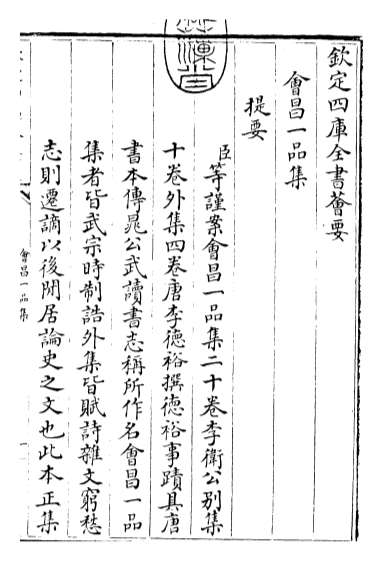 欽定四庫全書薈要
會昌一品集
提要
臣等謹案會昌一品集二十卷李衛公別集
十卷外集四卷唐李德裕撰德裕事蹟具唐
書本傳晁公武讀書志稱所作名會昌一品
集者皆武宗時制誥外集皆賦詩雜文窮愁
志則遷謫以後閒居論史之文也此本正集
會昌一品集